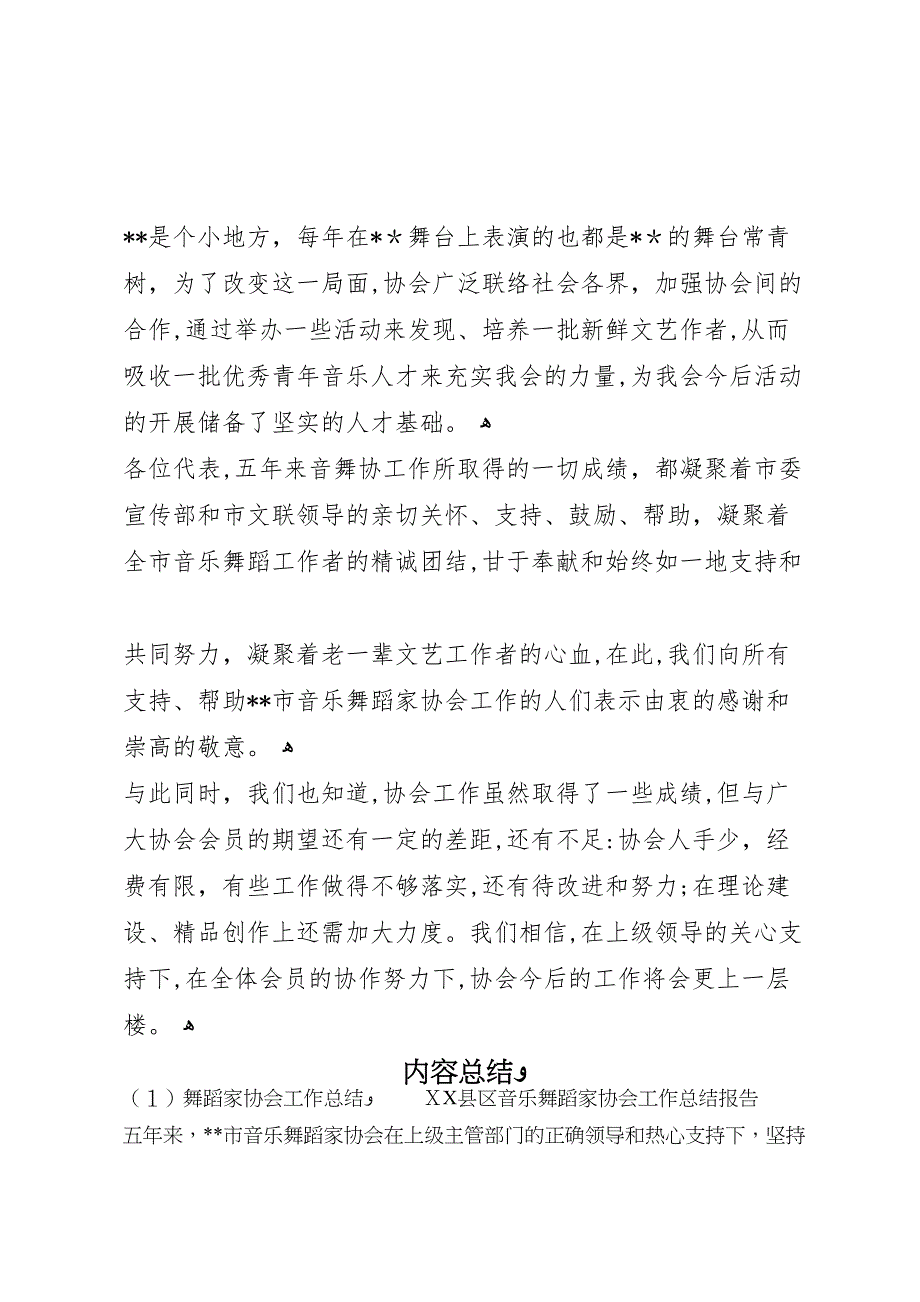 **是个小地方，每年在*＊舞台上表演的也都是*＊的舞台常青
树，为了改变这一局面,协会广泛联络社会各界，加强协会间的
合作,通过举办一些活动来发现、培养一批新鲜文艺作者,从而
吸收一批优秀青年音乐人才来充实我会的力量,为我会今后活动
的开展储备了坚实的人才基础。 ﻫ
各位代表,五年来音舞协工作所取得的一切成绩，都凝聚着市委
宣传部和市文联领导的亲切关怀、支持、鼓励、帮助，凝聚着
全市音乐舞蹈工作者的精诚团结,甘于奉献和始终如一地支持和
共同努力，凝聚着老一辈文艺工作者的心血,在此,我们向所有
支持、帮助**市音乐舞蹈家协会工作的人们表示由衷的感谢和
崇高的敬意。 ﻫ
与此同时，我们也知道,协会工作虽然取得了一些成绩,但与广
大协会会员的期望还有一定的差距,还有不足:协会人手少，经
费有限，有些工作做得不够落实,还有待改进和努力;在理论建
设、精品创作上还需加大力度。我们相信,在上级领导的关心支
持下,在全体会员的协作努力下,协会今后的工作将会更上一层
楼。 ﻫ
内容总结ﻭ
（１）舞蹈家协会工作总结ﻭ ＸX县区音乐舞蹈家协会工作总结报告
五年来，**市音乐舞蹈家协会在上级主管部门的正确领导和热心支持下，坚持